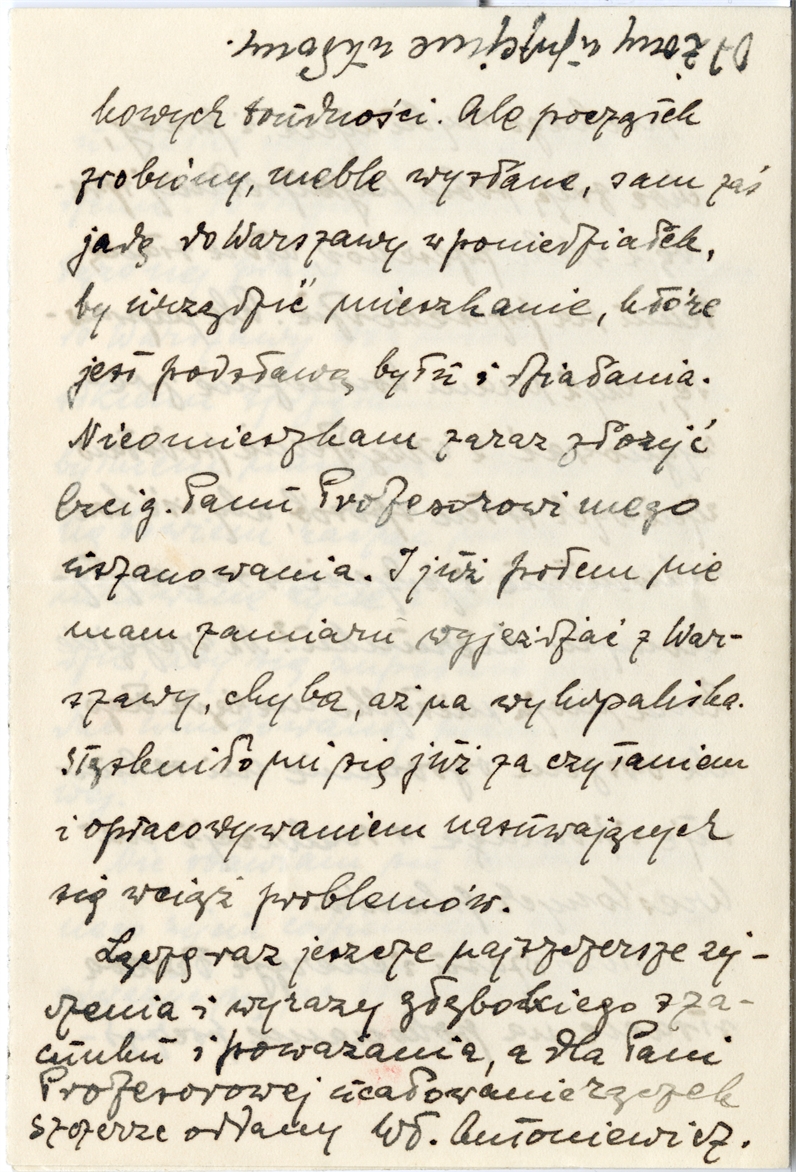 kowych trudności. Ale początek
zrobiony, meble wysłane, sam zaś
jadę do Warszawy w poniedziałek,
by urządzić mieszkanie, które
jest podstawą bytu i działania.
Nieomieszkam zaraz złożyć
Czcig. Panu Profesorowi mego
uszanowania. I już potem nie
mam zamiaru wyjeżdżać z War-
szawy, chyba, aż na wykopaliska.
Stęskniło mi się już za czytaniem
i opracowywaniem nasuwających
się wciąż problemów.
Łączę raz jeszcze najszczersze ży-
czenia i wyrazy głębokiego sza-
cunku i poważania, a dla Pani
Profesorowej ucałowanie rączek
szczerze oddany Wł. Antoniewicz.
Od żony uprzejme ukłony.